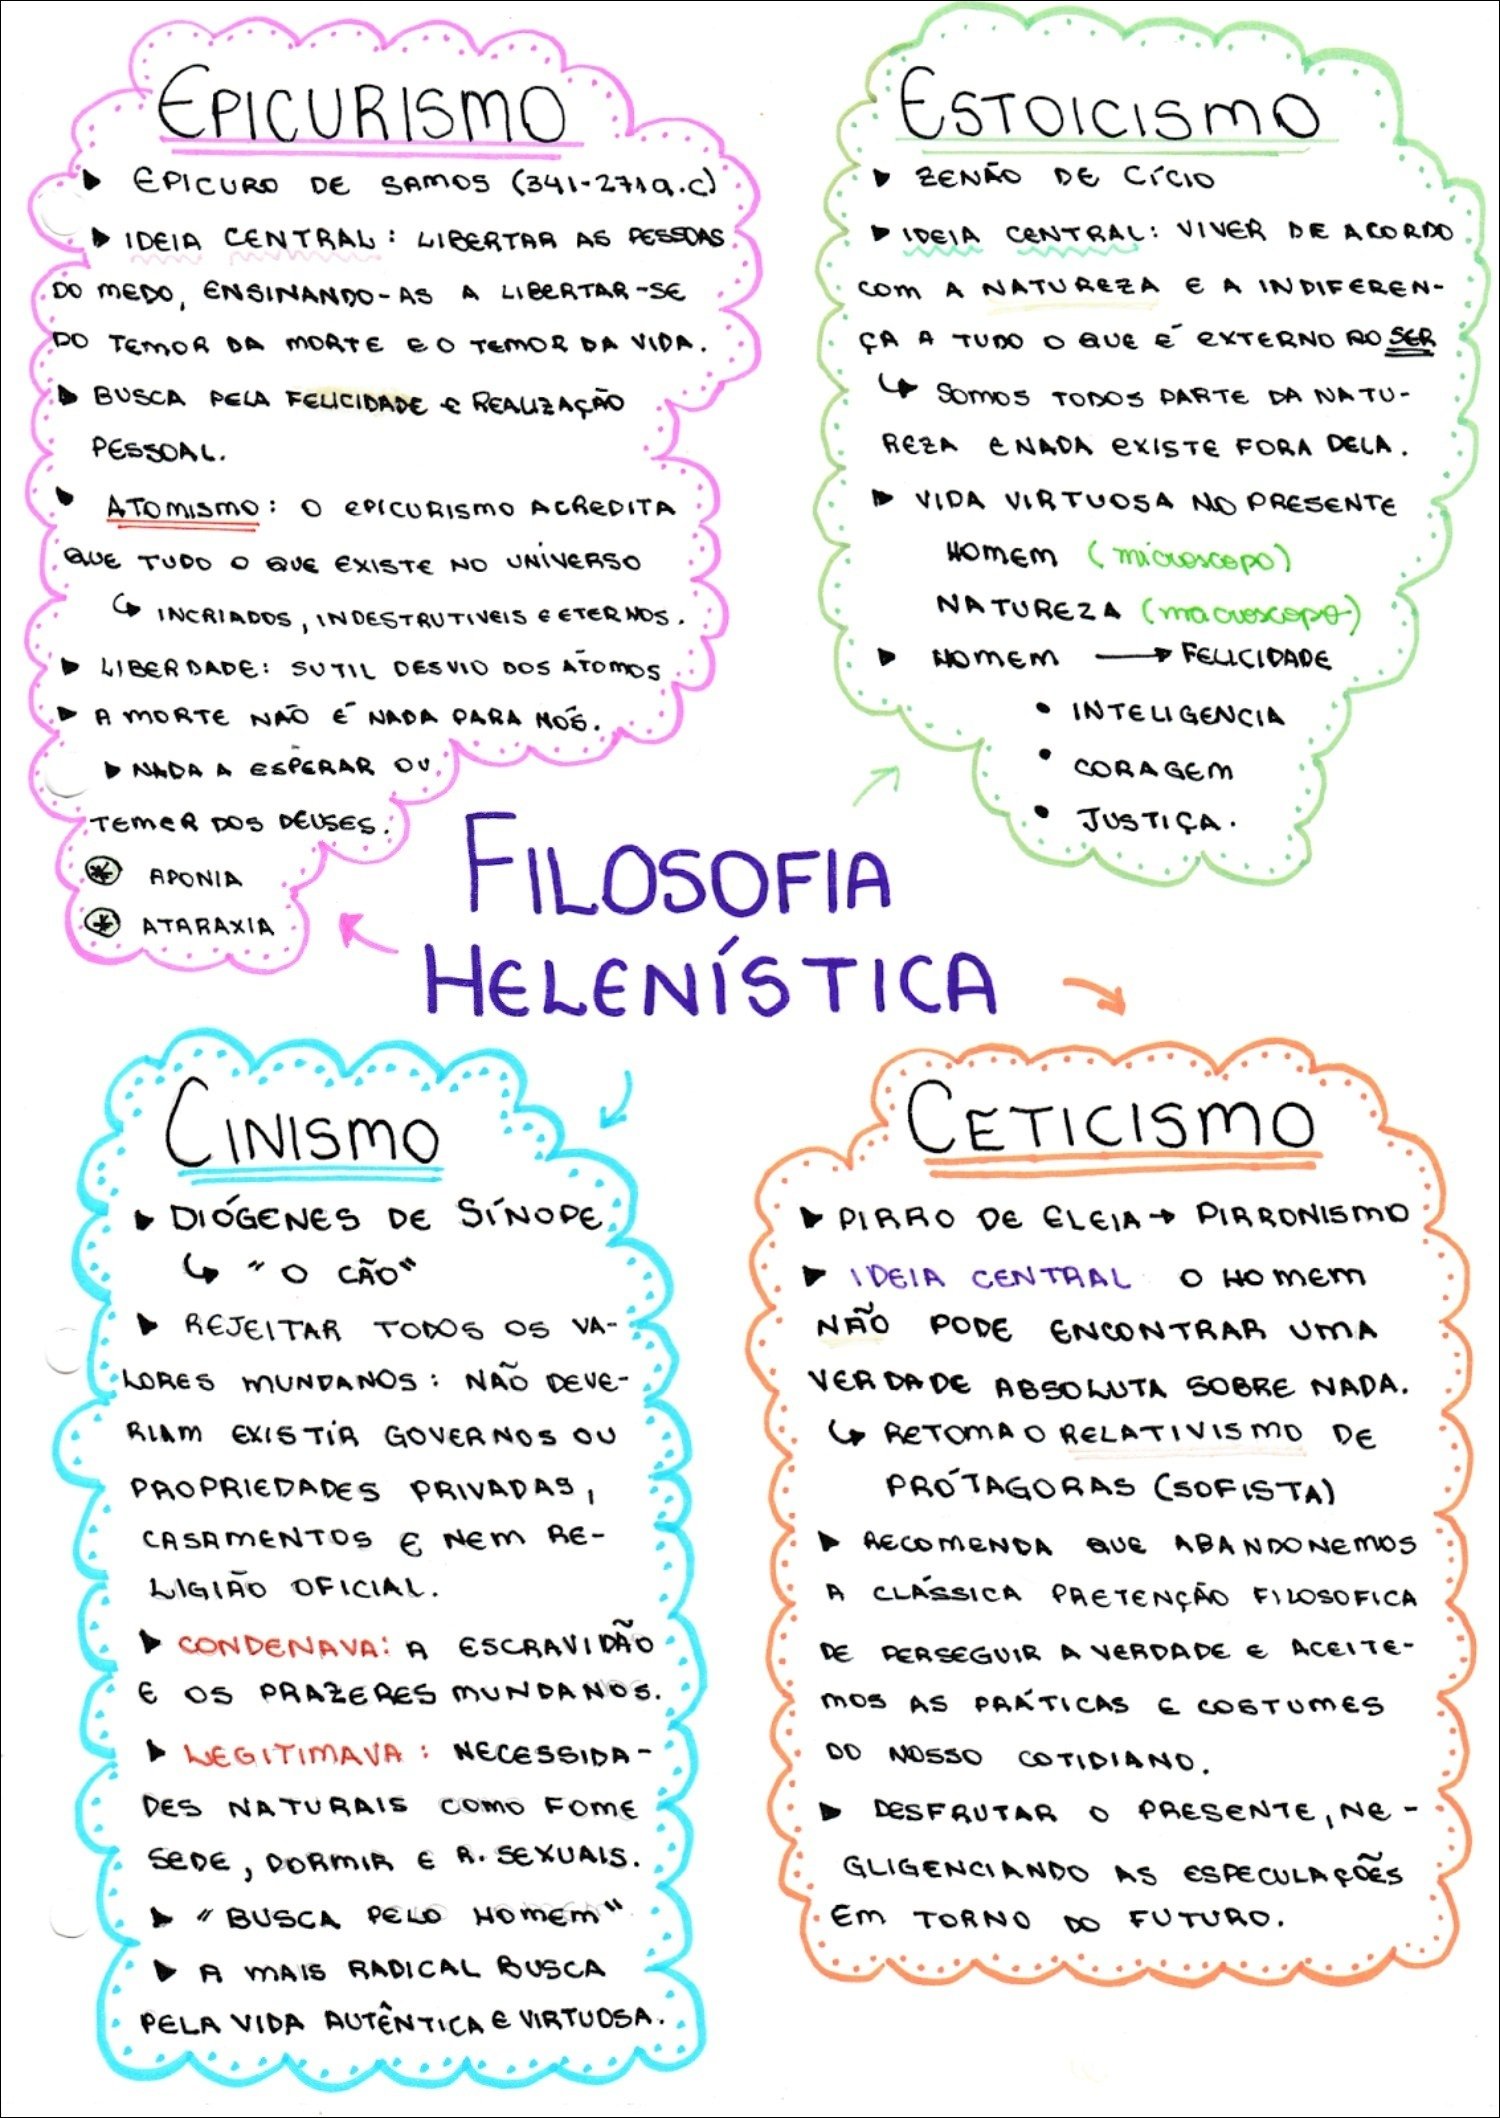 EPICURISMO
EPICURO DE SAMOS (341-271a.C)
IDEIA CENTRAL: LIBERTAR AS PESSOAS
DO MEDO, ENSINANDO-AS A LIBERTAR-SE
DO TEMOR DA MORTE E O TEMOR DA VIDA.
BUSCA PELA FELICIDADE E REALIZAÇÃO
PESSOAL.
ATOMISMO: O EPICURISMO ACREDITA
QUE TUDO O QUE EXISTE NO UNIVERSO
↳ INCRIADOS, INDESTRUTIVEIS E ETERNOS.
LIBERDADE: SUTIL DESVIO DOS ÁTOMOS
A MORTE NÃO É NADA PARA NÓS.
NADA A ESPERAR OU
TEMER DOS DEUSES.
APONIA
ATARAXIA
ESTOICISMO
ZENÃO DE CÍCIO
IDEIA CENTRAL: VIVER DE ACORDO
COM A NATUREZA E A INDIFEREN-
ÇA A TUDO O QUE É EXTERNO AO SER
↳ SOMOS TODOS PARTE DA NATU-
REZA E NADA EXISTE FORA DELA.
VIDA VIRTUOSA NO PRESENTE
HOMEM (microscopo)
NATUREZA (macroscopo)
HOMEM → FELICIDADE
• INTELIGENCIA
• CORAGEM
• JUSTIÇA.
FILOSOFIA
HELENÍSTICA
CINISMO
DIÓGENES DE SÍNOPE
↳ "O CÃO"
REJEITAR TODOS OS VA-
LORES MUNDANOS: NÃO DEVE-
RIAM EXISTIR GOVERNOS OU
PROPRIEDADES PRIVADAS,
CASAMENTOS E NEM RE-
LIGIÃO OFICIAL.
CONDENAVA: A ESCRAVIDÃO
E OS PRAZERES MUNDANOS.
LEGITIMAVA: NECESSIDA-
DES NATURAIS COMO FOME
SEDE, DORMIR E R. SEXUAIS.
"BUSCA PELO HOMEM"
A MAIS RADICAL BUSCA
PELA VIDA AUTÊNTICA E VIRTUOSA.
CETICISMO
PIRRO DE ELEIA → PIRRONISMO
IDEIA CENTRAL O HOMEM
NÃO PODE ENCONTRAR UMA
VERDADE ABSOLUTA SOBRE NADA.
↳ RETOMA O RELATIVISMO DE
PRÓTAGORAS (SOFISTA)
RECOMENDA QUE ABANDONEMOS
A CLÁSSICA PRETENÇÃO FILOSOFICA
DE PERSEGUIR A VERDADE E ACEITE-
MOS AS PRÁTICAS E COSTUMES
DO NOSSO COTIDIANO.
DESFRUTAR O PRESENTE, NE-
GLIGENCIANDO AS ESPECULAÇÕES
EM TORNO DO FUTURO.